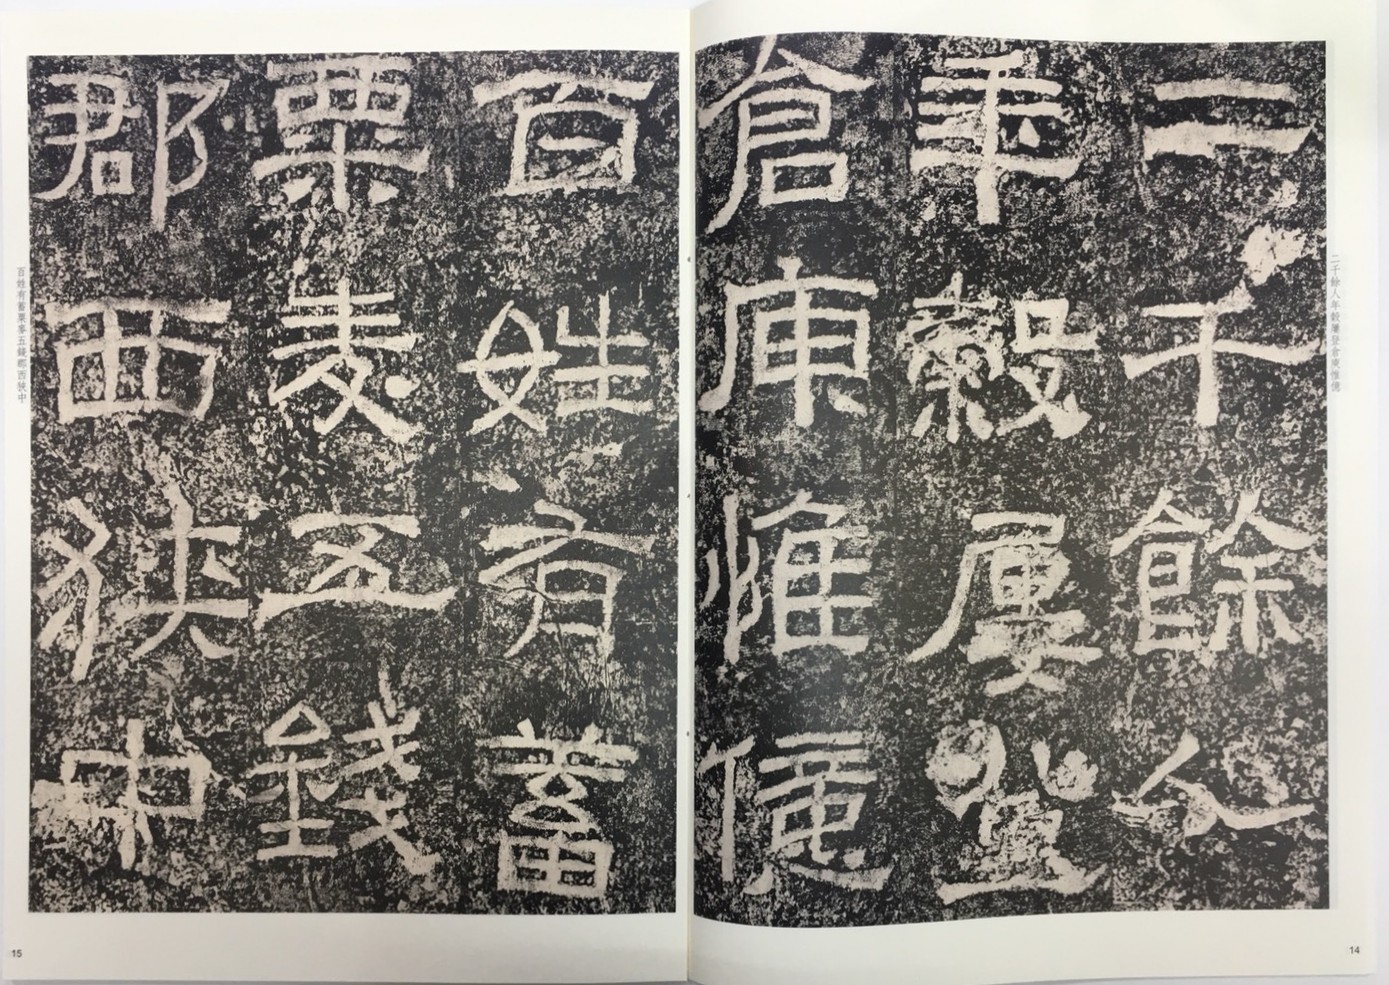 二千餘人
年穀屢登
倉庾惟億
二千餘人年穀屢登倉庾惟億
14
百姓有蓄
粟麥五錢
郡西狹中
百姓有蓄粟麥五錢郡西狹中
15